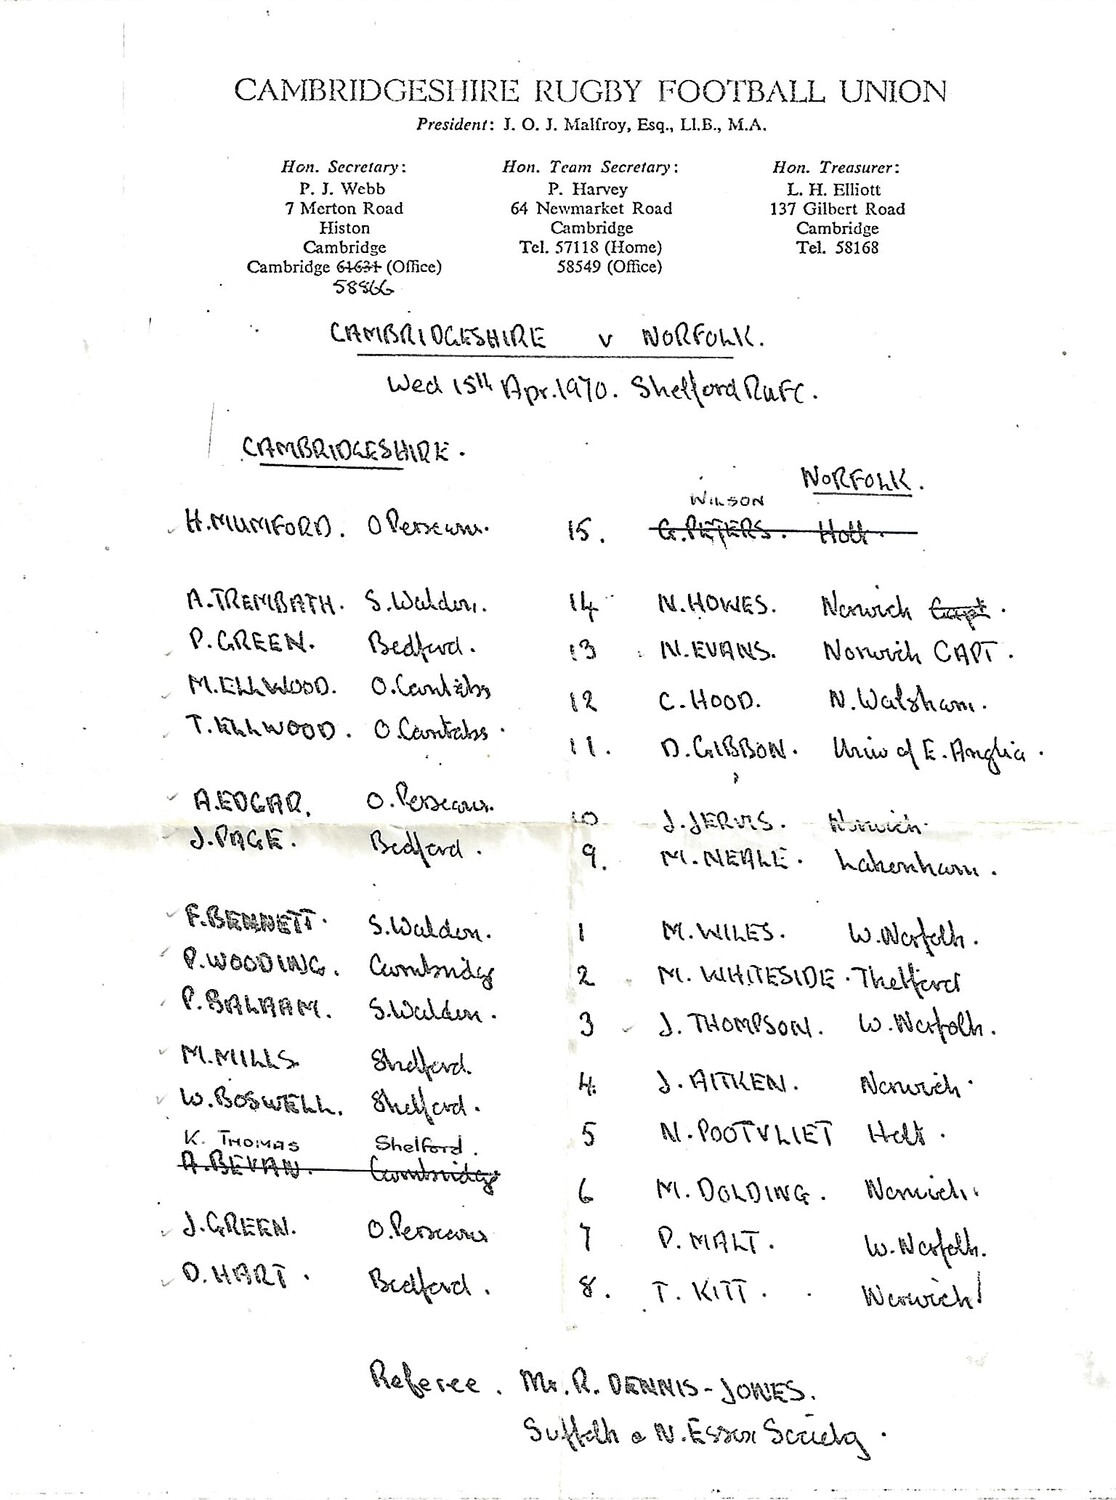 CAMBRIDGESHIRE RUGBY FOOTBALL UNION
President: J. O. J. Malfroy, Esq., Ll.B., M.A.
Hon. Secretary: Hon. Team Secretary: Hon. Treasurer:
P. J. Webb P. Harvey L. H. Elliott
7 Merton Road 64 Newmarket Road 137 Gilbert Road
Histon Cambridge Cambridge
Cambridge Tel. 57118 (Home) Tel. 58168
Cambridge 61631 (Office) 58549 (Office)
58866
CAMBRIDGESHIRE v NORFOLK.
Wed 15th Apr. 1970. Shelford RUFC.
CAMBRIDGESHIRE.
NORFOLK.
WILSON
H. MUMFORD. O Perseans. 15. G. PETERS. Holt.
A. TREMBATH. S. Walden. 14 N. HOWES. Norwich Capt.
P. GREEN. Bedford. 13 N. EVANS. Norwich CAPT.
M. ELLWOOD. O. Cantabs 12 C. HOOD. N. Walsham.
T. ELLWOOD. O. Cantabs. 11. D. GIBBON. Univ of E. Anglia.
A. EDGAR. O. Perseans. 10 J. JERVIS. Norwich.
J. PAGE. Bedford. 9. M. NEALE. Lakenham.
F. BENNETT. S. Walden. 1 M. WILES. W. Norfolk.
P. WOODING. Cambridge 2 M. WHITESIDE. Thetford
P. BALAAM. S. Walden. 3 J. THOMPSON. W. Norfolk.
M. MILLS Shelford. 4. J. AITKEN. Norwich.
W. BOSWELL. Shelford. 5 N. POOTVLIET Holt.
K. THOMAS Shelford.
A. BEVAN. Cambridge 6 M. DOLDING. Norwich.
J. GREEN. O. Perseans 7 P. MALT. W. Norfolk.
D. HART. Bedford. 8. T. KITT. Norwich!
Referee. Mr. R. DENNIS-JONES.
Suffolk & N. Essex Society.